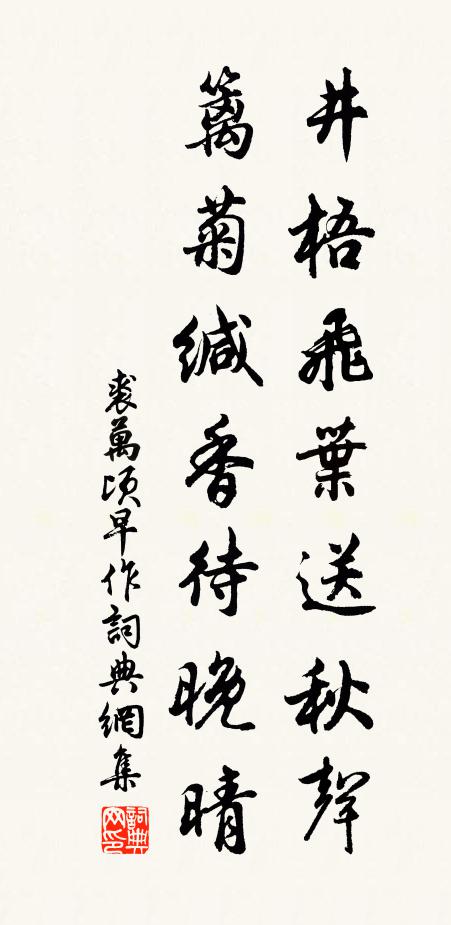 井梧飛葉送秋聲
籬菊緘香待晚晴
裘萬頃早作詞典網集
詞典网印